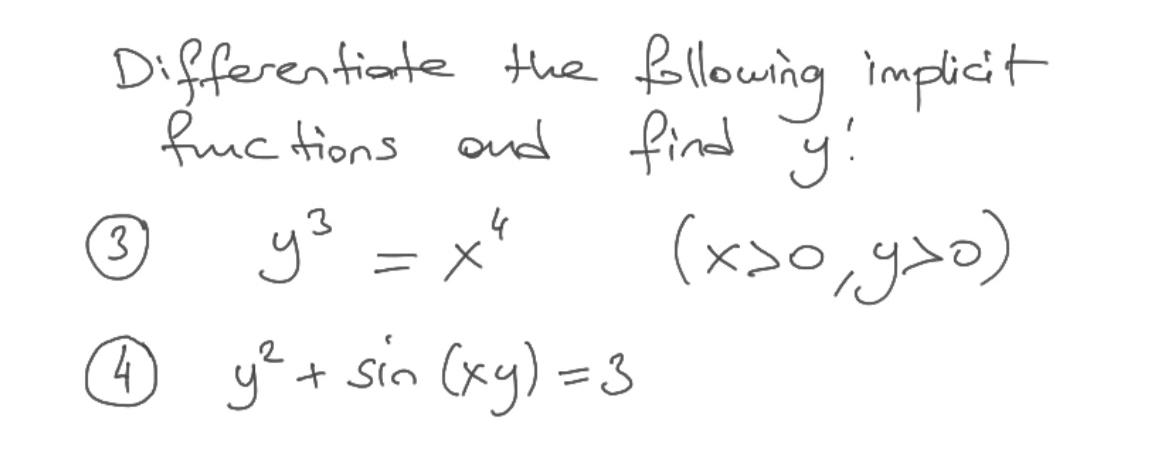 Differentiate the following implicit
functions and find y'.
③ y³ = x⁴ (x>0, y>0)
④ y² + sin (xy) = 3